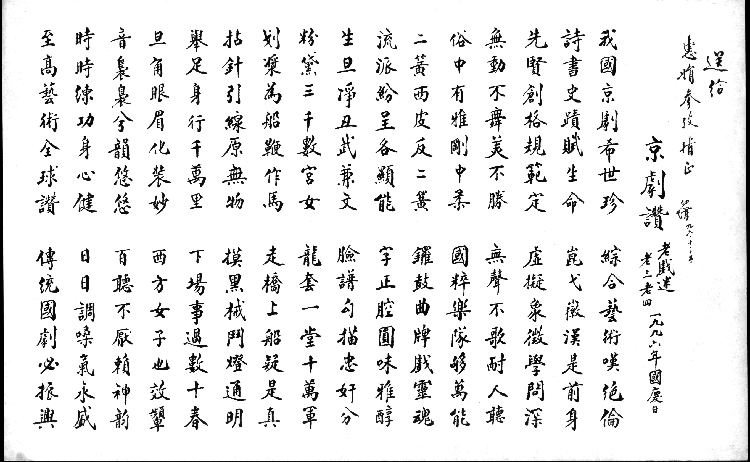 送給
惠娟 指正
京劇讚
老戲迷
老三老四
一九九六年國慶日
我國京劇希世珍 綜合藝術嘆絕倫
詩書史蹟賦生命 崑弋徽漢是前身
先賢創格規範定 虛擬象徵學問深
無動不舞美不勝 無聲不歌耐人聽
俗中有雅剛中柔 國粹樂隊夠萬能
二簧西皮反二簧 鑼鼓曲牌戲靈魂
流派紛呈各顯能 字正腔圓味雅醇
生旦淨丑武兼文 臉譜勾描忠奸分
粉黛三千數宮女 龍套一堂十萬軍
划槳為船鞭作馬 走橋上船疑是真
拈針引線原無物 摸黑械鬥燈通明
舉足身行千萬里 下場事過數十春
旦角眼眉化裝妙 西方女子也效顰
音裊裊兮韻悠悠 百聽不厭賴神韵
時時練功身心健 日日調嗓氣永盛
至高藝術全球讚 傳統國劇必振興